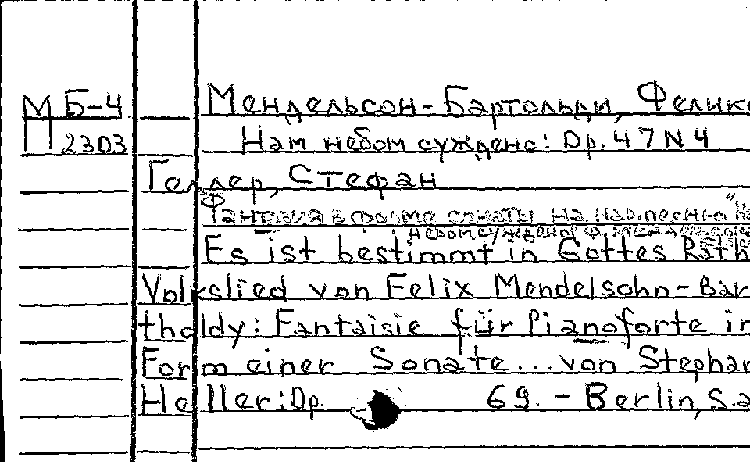 М Б-4 Мендельсон-Бартольди, Феликс
П 2303 Нам небом суждено: Op. 47 N 4
Геллер, Стефан
Фантазия в форме сонаты на нар. песню "Н
небом суждено" Ф. Мендельсон
Es ist bestimmt in Gottes Rath
Volkslied von Felix Mendelsohn-Bar
tholdy: Fantaisie für Pianoforte in
Form einer Sonate... von Stephan
Heller: Op. 69. - Berlin, s.a